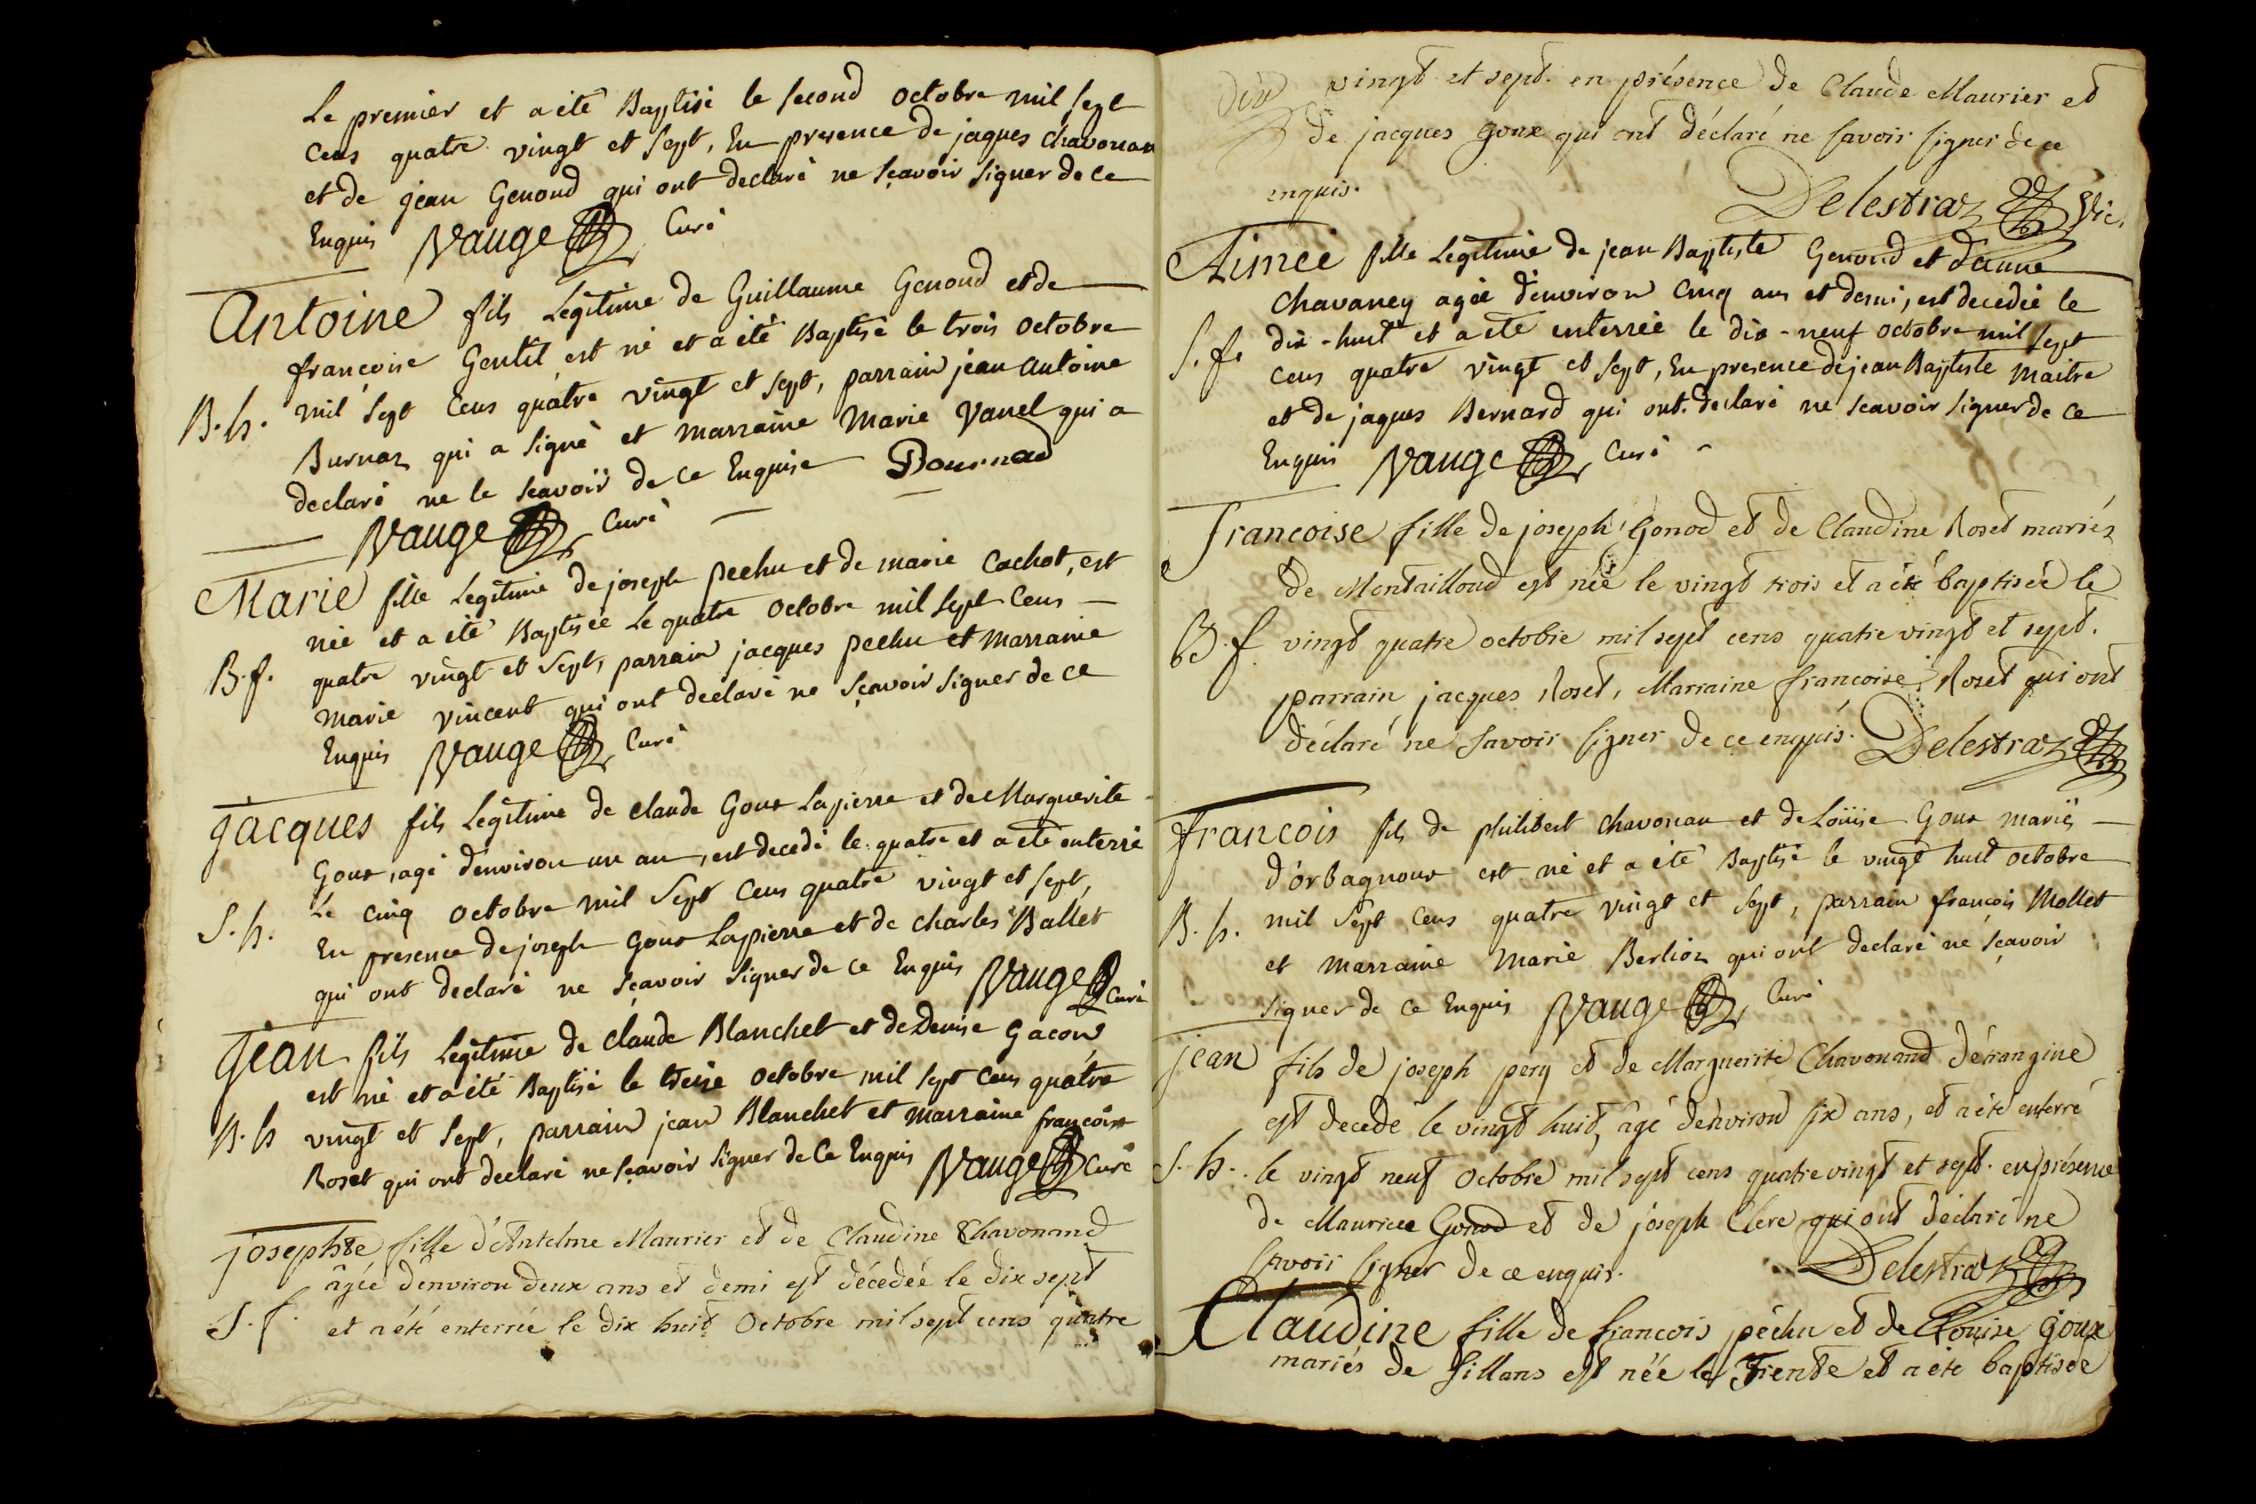 Le premier et a été Baptisé le second octobre mil sept
cens quatre vingt et sept, En presence de jaques chavonan
et de jean Genoud qui ont declaré ne sçavoir signer de ce
Enquis Vauge Curé
Antoine fils Legitime de Guillaume Genoud et de
françoise Gentil est né et a été Baptisé le trois octobre
B. h. mil sept cens quatre vingt et sept, parrain jean antoine
Burnaz qui a signé et marraine Marie Vanel qui a
declaré ne le sçavoir de ce Enquise Bournad
Vauge Curé
Marie fille Legitime de joseph pechu et de marie Cachot, est
née et a été Baptisée Le quatre octobre mil sept cens
B. f. quatre vingt et sept, parrain jacques pechu et Marraine
Marie vincent qui ont declaré ne sçavoir signer de ce
Enquis Vauge Curé
jacques fils Legitime de claude Goux Lapierre et de Marguerite
Goux, agé d'environ un an, est decedé le quatre et a été enterré
S. h. Le cinq octobre mil sept cens quatre vingt et sept,
En presence de joseph Goux Lapierre et de charles Ballet
qui ont declaré ne sçavoir signer de ce Enquis Vauge Curé
jean fils Legitime de claude Blanchet et de Denise Gacon
est né et a été Baptisé le treize octobre mil sept cens quatre
B. h vingt et sept, parrain jean Blanchet et marraine françoise
Roset qui ont declaré ne sçavoir signer de Ce Enquis Vauge Curé
josephte fille d'Antelme Maurier et de Claudine Chavonand
âgée d'environ deux ans et demi est décedée le dix sept
S. f. et a été enterrée le dix huit Octobre mil sept cens quatre
vingt et sept. en présence de Claude Maurier et
de jacques goux qui ont déclaré ne savoir signer de ce
enquis. Delestraz Vic.
Aimée fille Legitime de jean Baptiste Genoud et d'anne
Chavaney agée d'environ cinq ans et demi, est decedée le
S. f. dix-huit et a été enterrée le dix-neuf octobre mil sept
cens quatre vingt et sept, En presence de jean Baptiste Maitre
et de jaques Bernard qui ont declaré ne sçavoir signer de ce
Enquis Vauge Curé
francoise fille de joseph Gonod et de Claudine Roset mariés
de Montailloud est née le vingt trois et a été baptisée le
B. f. vingt quatre octobre mil sept cens quatre vingt et sept.
parrain jacques Roset, Marraine francoise Roset qui ont
déclaré ne savoir signer de ce enquis. Delestraz
francois fils de philibert chavonan et de Loüise Goux mariés
d'orbagnoux est né et a été Baptisé le vingt huit octobre
B. h. mil sept cens quatre vingt et sept, parrain françois Mollet
et marraine Marie Berlioz qui ont declaré ne sçavoir
signer de ce Enquis Vauge Curé
jean fils de joseph pery et de Marguerite Chavonand dérangine
est decedé le vingt huit, âgé d'environ six ans, et a été enterré
S. h. le vingt neuf Octobre mil sept cens quatre vingt et sept. en présence
de Maurice Gonod et de joseph Clerc qui ont déclaré ne
savoir signer de ce enquis. Delestraz
Claudine fille de francois péchu et de Louise goux
mariés de sillans est née le Trente et a été baptisée